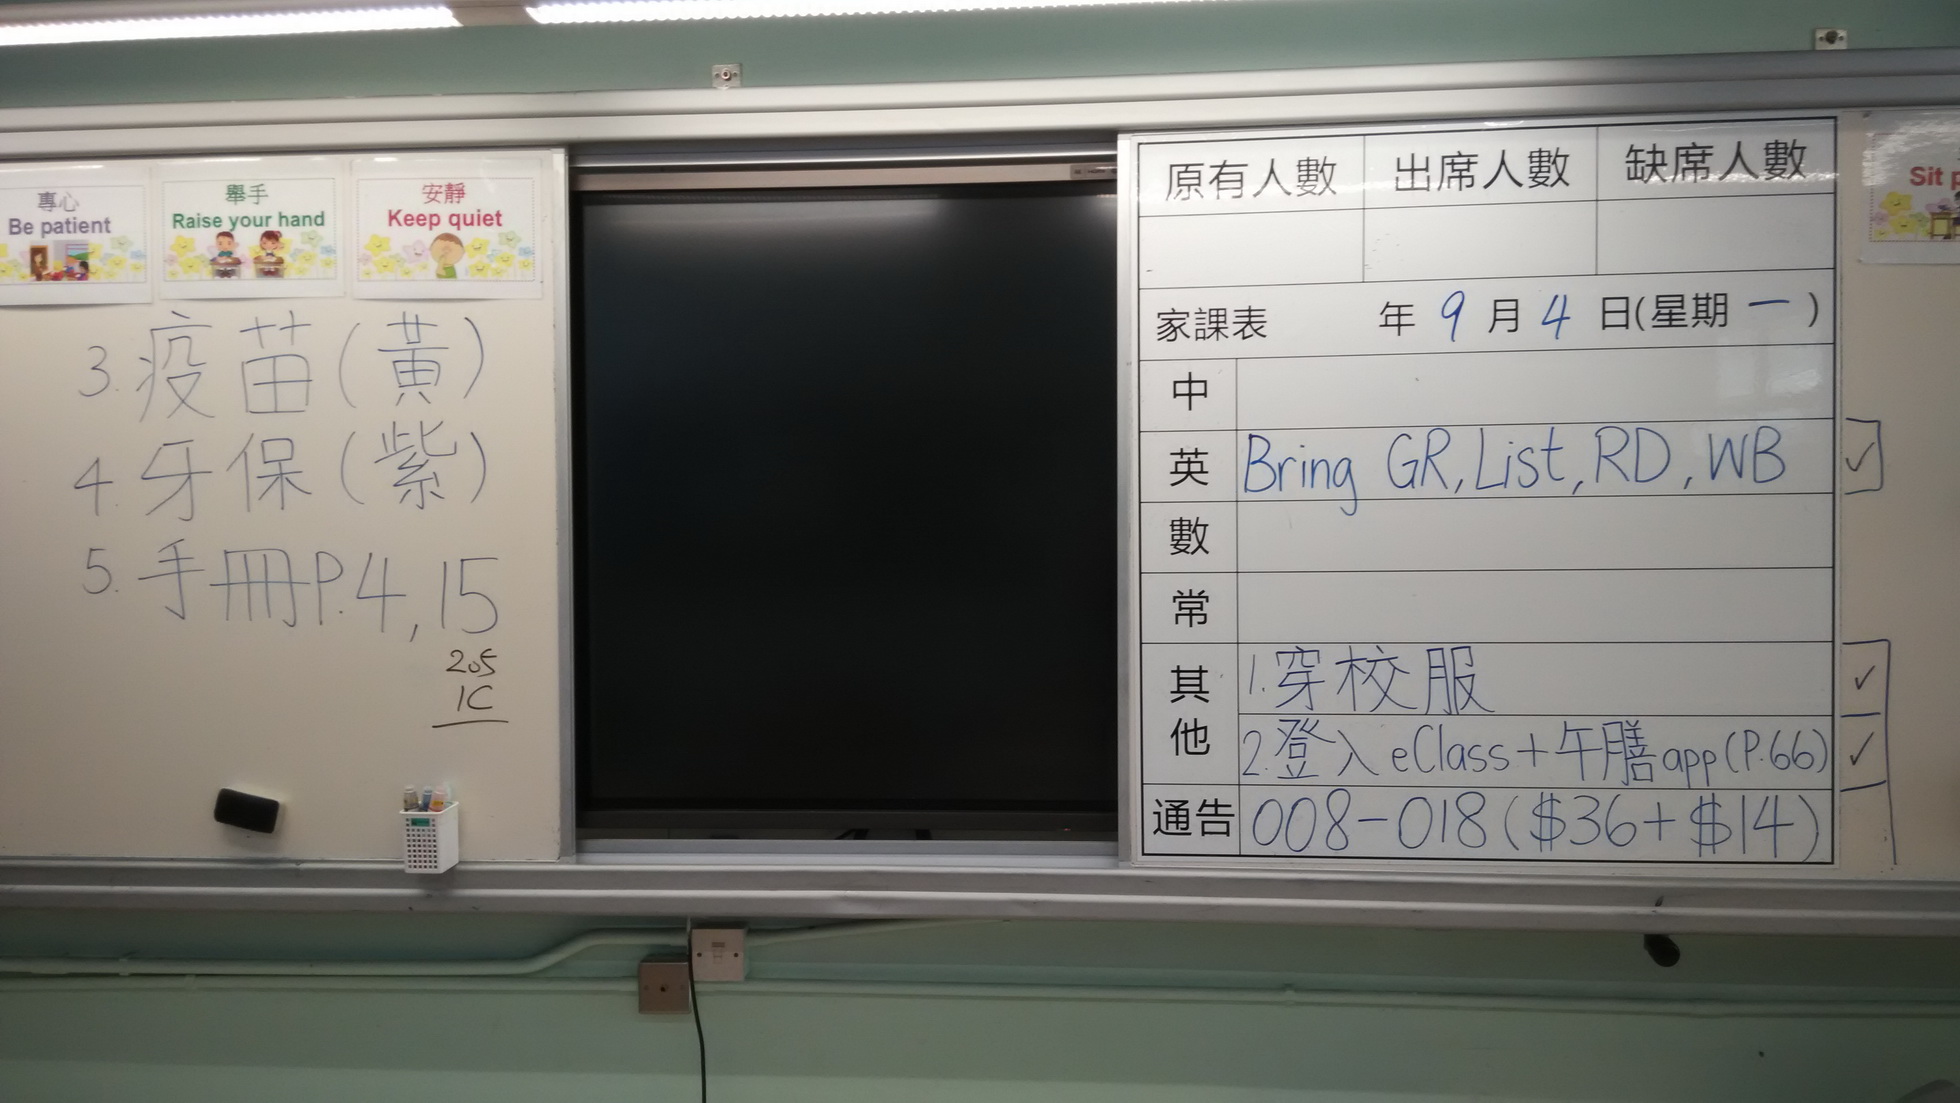 專心
Be patient
舉手
Raise your hand
安靜
Keep quiet
3. 疫苗(黃)
4. 牙保(紫)
5. 手冊P.4,15
205
1C
原有人數 出席人數 缺席人數
家課表 年 9 月 4 日(星期 一 )
中
英 Bring GR, List, RD, WB
數
常
其他 1. 穿校服
2. 登入 eClass + 午膳 app (P.66)
通告 008-018 ($36+$14)
Sit